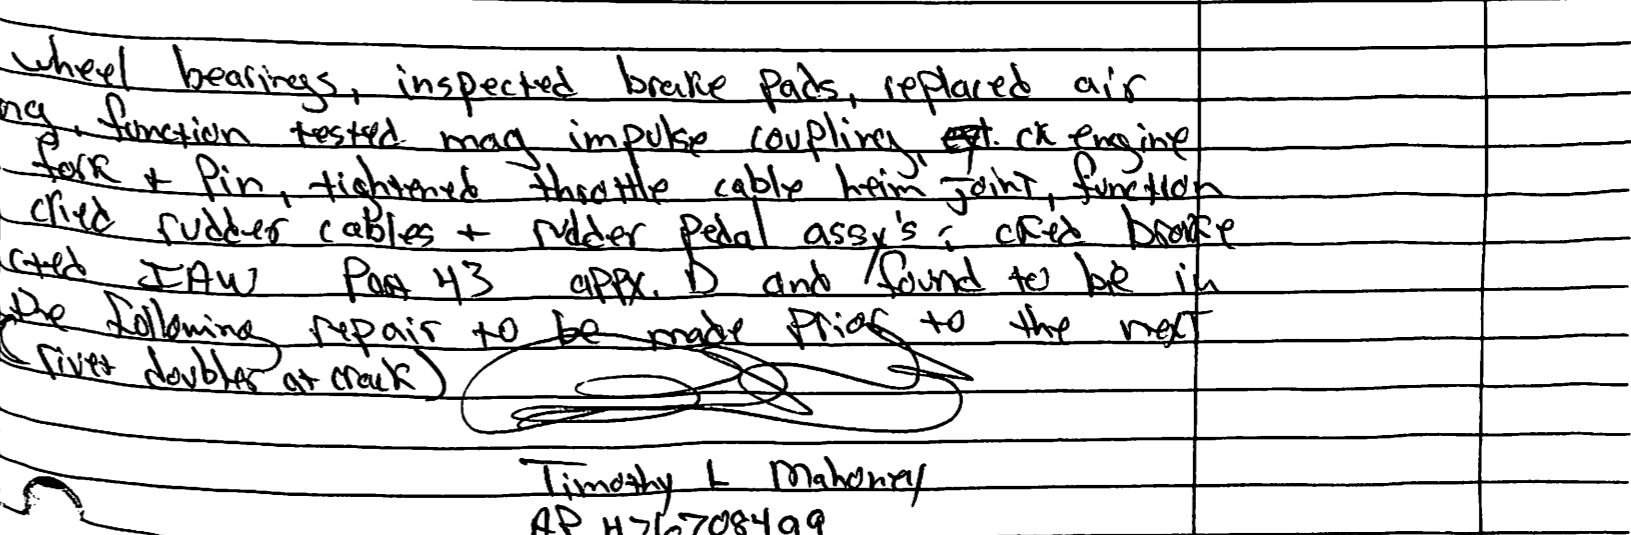 wheel bearings, inspected brake pads, replaced air
ng, function tested mag impulse coupling, ck engine
fork + Pin, tightened throttle cable heim joint, function
cked rudder cables + rudder pedal assy's; cked brake
cted IAW Part 43 appx. D and found to be in
the following repair to be made prior to the next
(rivet doubler at crack)
Timothy L Mahoney
AP